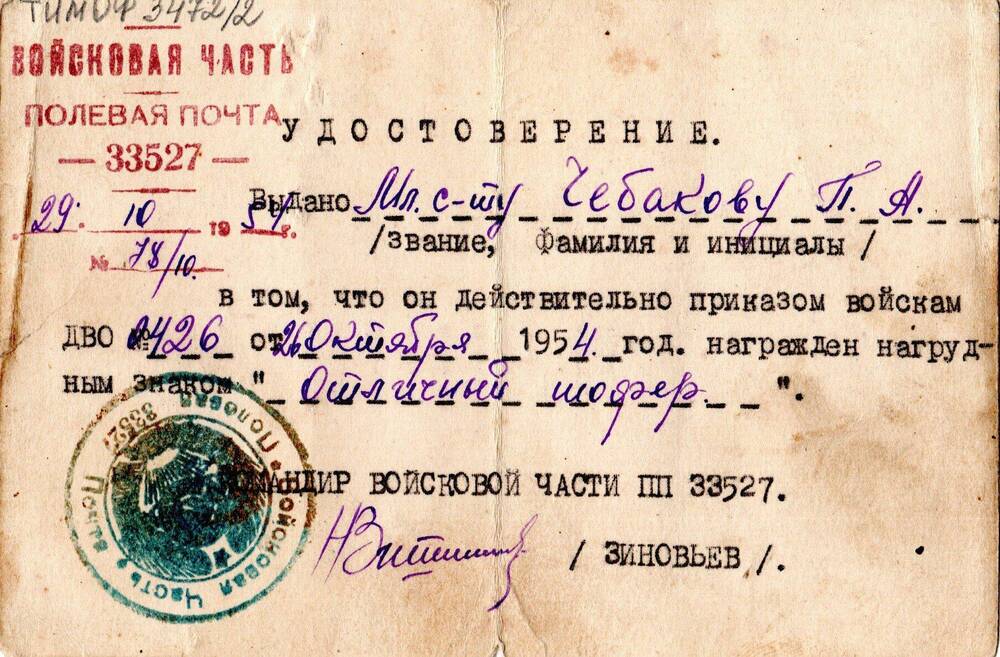 ТИМОФ 3472/2
ВОЙСКОВАЯ ЧАСТЬ
ПОЛЕВАЯ ПОЧТА
— 33527 —
29. 10 1954 г.
№ 78/10.
УДОСТОВЕРЕНИЕ.
Выдано Мл. с-ту Чебакову П. А.
/звание, Фамилия и инициалы /
в том, что он действительно приказом войскам
ДВО № 426 от 26 Октября 1954. год. награжден нагруд-
ным знаком " Отличный шофер. ".
КОМАНДИР ВОЙСКОВОЙ ЧАСТИ ПП 33527.
/ ЗИНОВЬЕВ /.
Войсковая Часть • Полевая Почта
33527